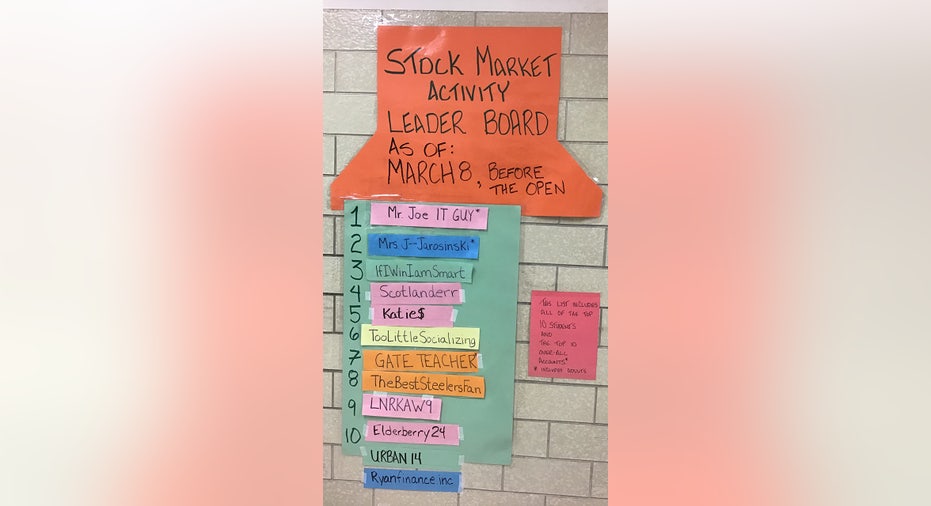 STOCK MARKET
ACTIVITY
LEADER BOARD
AS OF:
MARCH 8, BEFORE
THE OPEN
1 Mr. Joe IT GUY*
2 Mrs J--Jarosinski*
3 IfIWinIamSmart
4 Scotlanderr
5 Katie$
6 TooLittleSocializing
7 GATE TEACHER
8 TheBestSteelersFan
9 LNRKAW9
10 Elderberry24
URBAN14
Ryanfinance.inc
THIS LIST INCLUDES
ALL OF THE TOP
10 STUDENTS
AND
THE TOP 10
OVER-ALL
ACCOUNTS*
* INCLUDES ADULTS